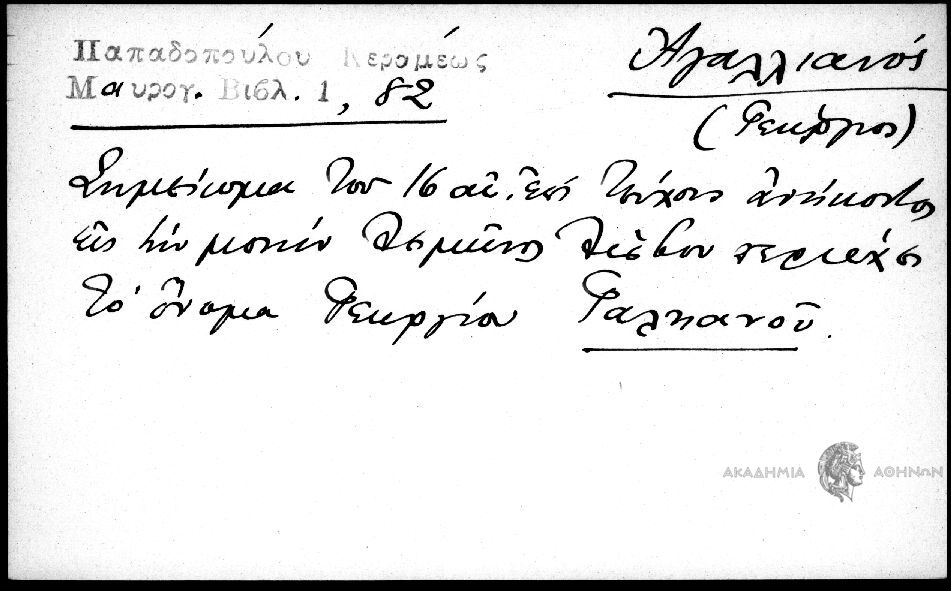 Παπαδοπούλου Κεραμέως
Μαυρογ. Βιβλ. 1, 82
Ἀγαλλιανός
(Γεώργιος)
Σημείωμα τοῦ 16 αἰ. ἐπὶ τεύχους ἀνήκοντος
εἰς τὴν μονὴν Λειμῶνος Λέσβου περιέχει
τὸ ὄνομα Γεωργίου Γαληανοῦ.
ΑΚΑΔΗΜΙΑ ΑΘΗΝΩΝ